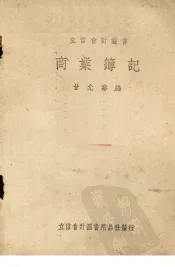 立信會計叢書
商業簿記
甘允壽編
立信會計圖書用品社發行